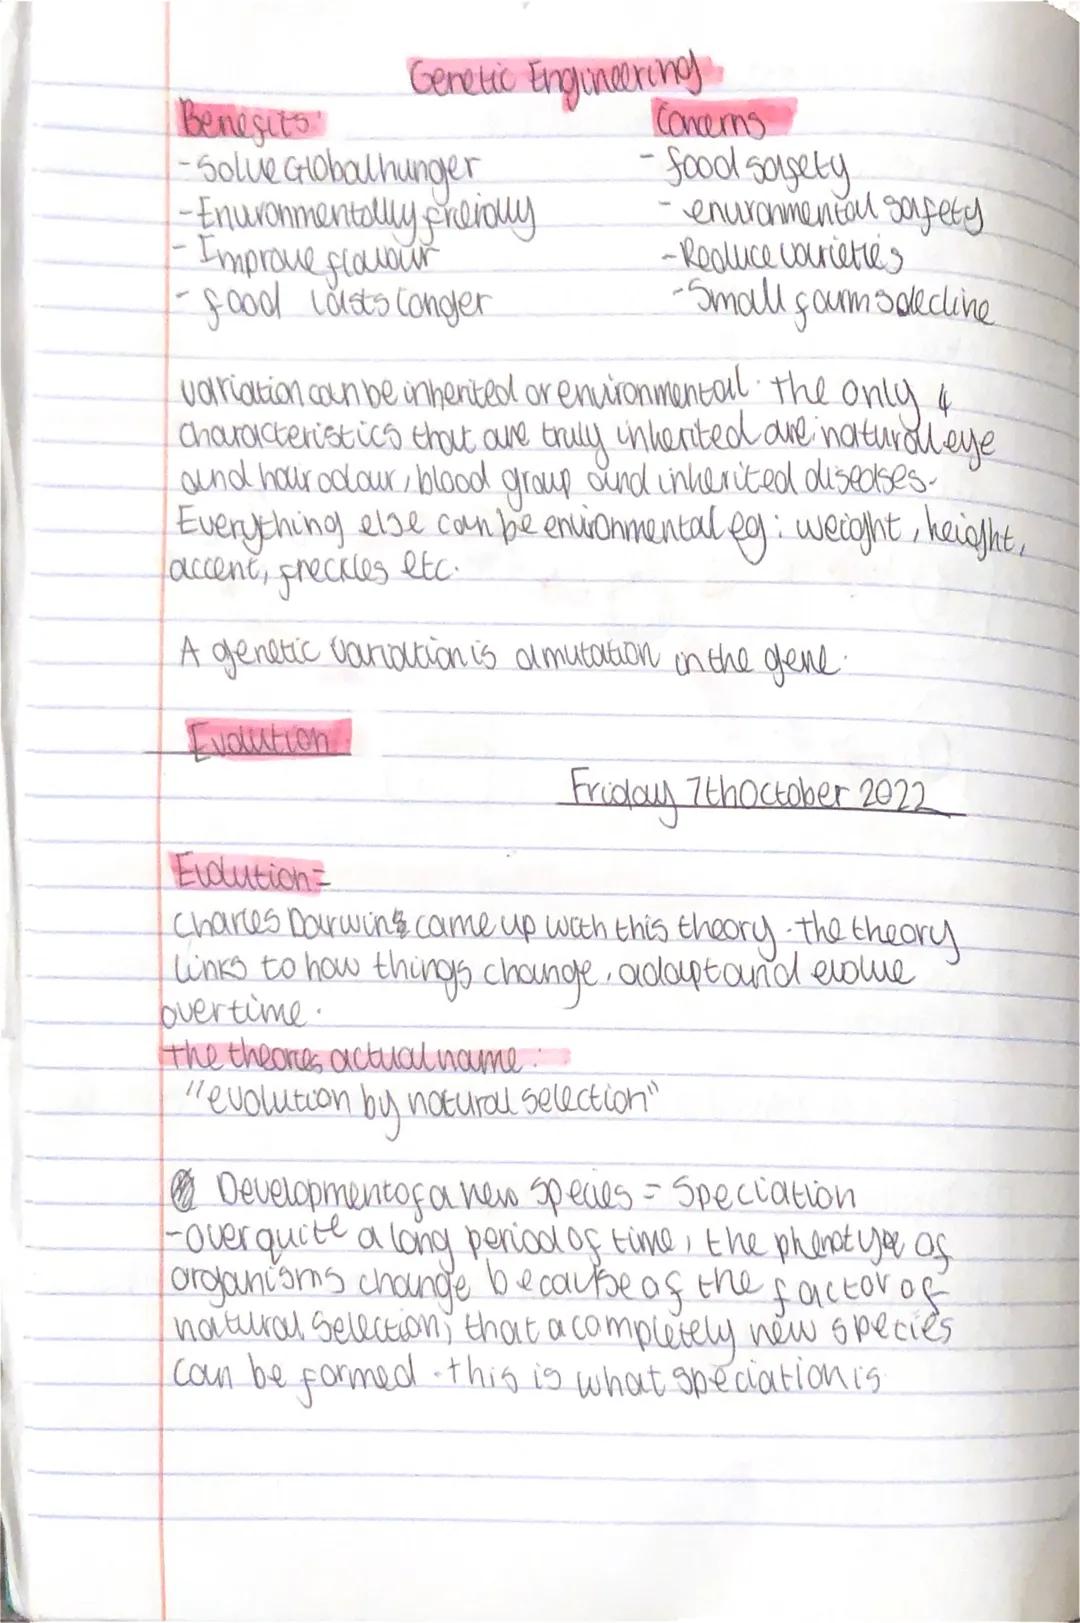 Genetic Engineering
Benefits:
Concerns
- Solve Global hunger
- food safety
- Enviromentally freindly
- enviromental safety
- Improve flavour
- Reduce varieties
- food lasts longer
- Small farms decline
variation can be inherited or environmental. The only 4
characteristics that are truly inherited are: natural eye
and hair colour, blood group and inherited diseases.
Everything else can be environmental eg: weight, height,
accent, freckles etc.
A genetic variation is a mutation in the gene.
Evolution
Friday 7th October 2022
Evolution =
Charles Darwin came up with this theory. the theory
links to how things change, adapt and evolve
overtime.
the theories actual name:
"evolution by natural selection"
Development of a new species = Speciation
- over quite a long period of time, the phenotype of
organisms change because of the factor of
natural selection, that a completely new species
can be formed. this is what speciation is